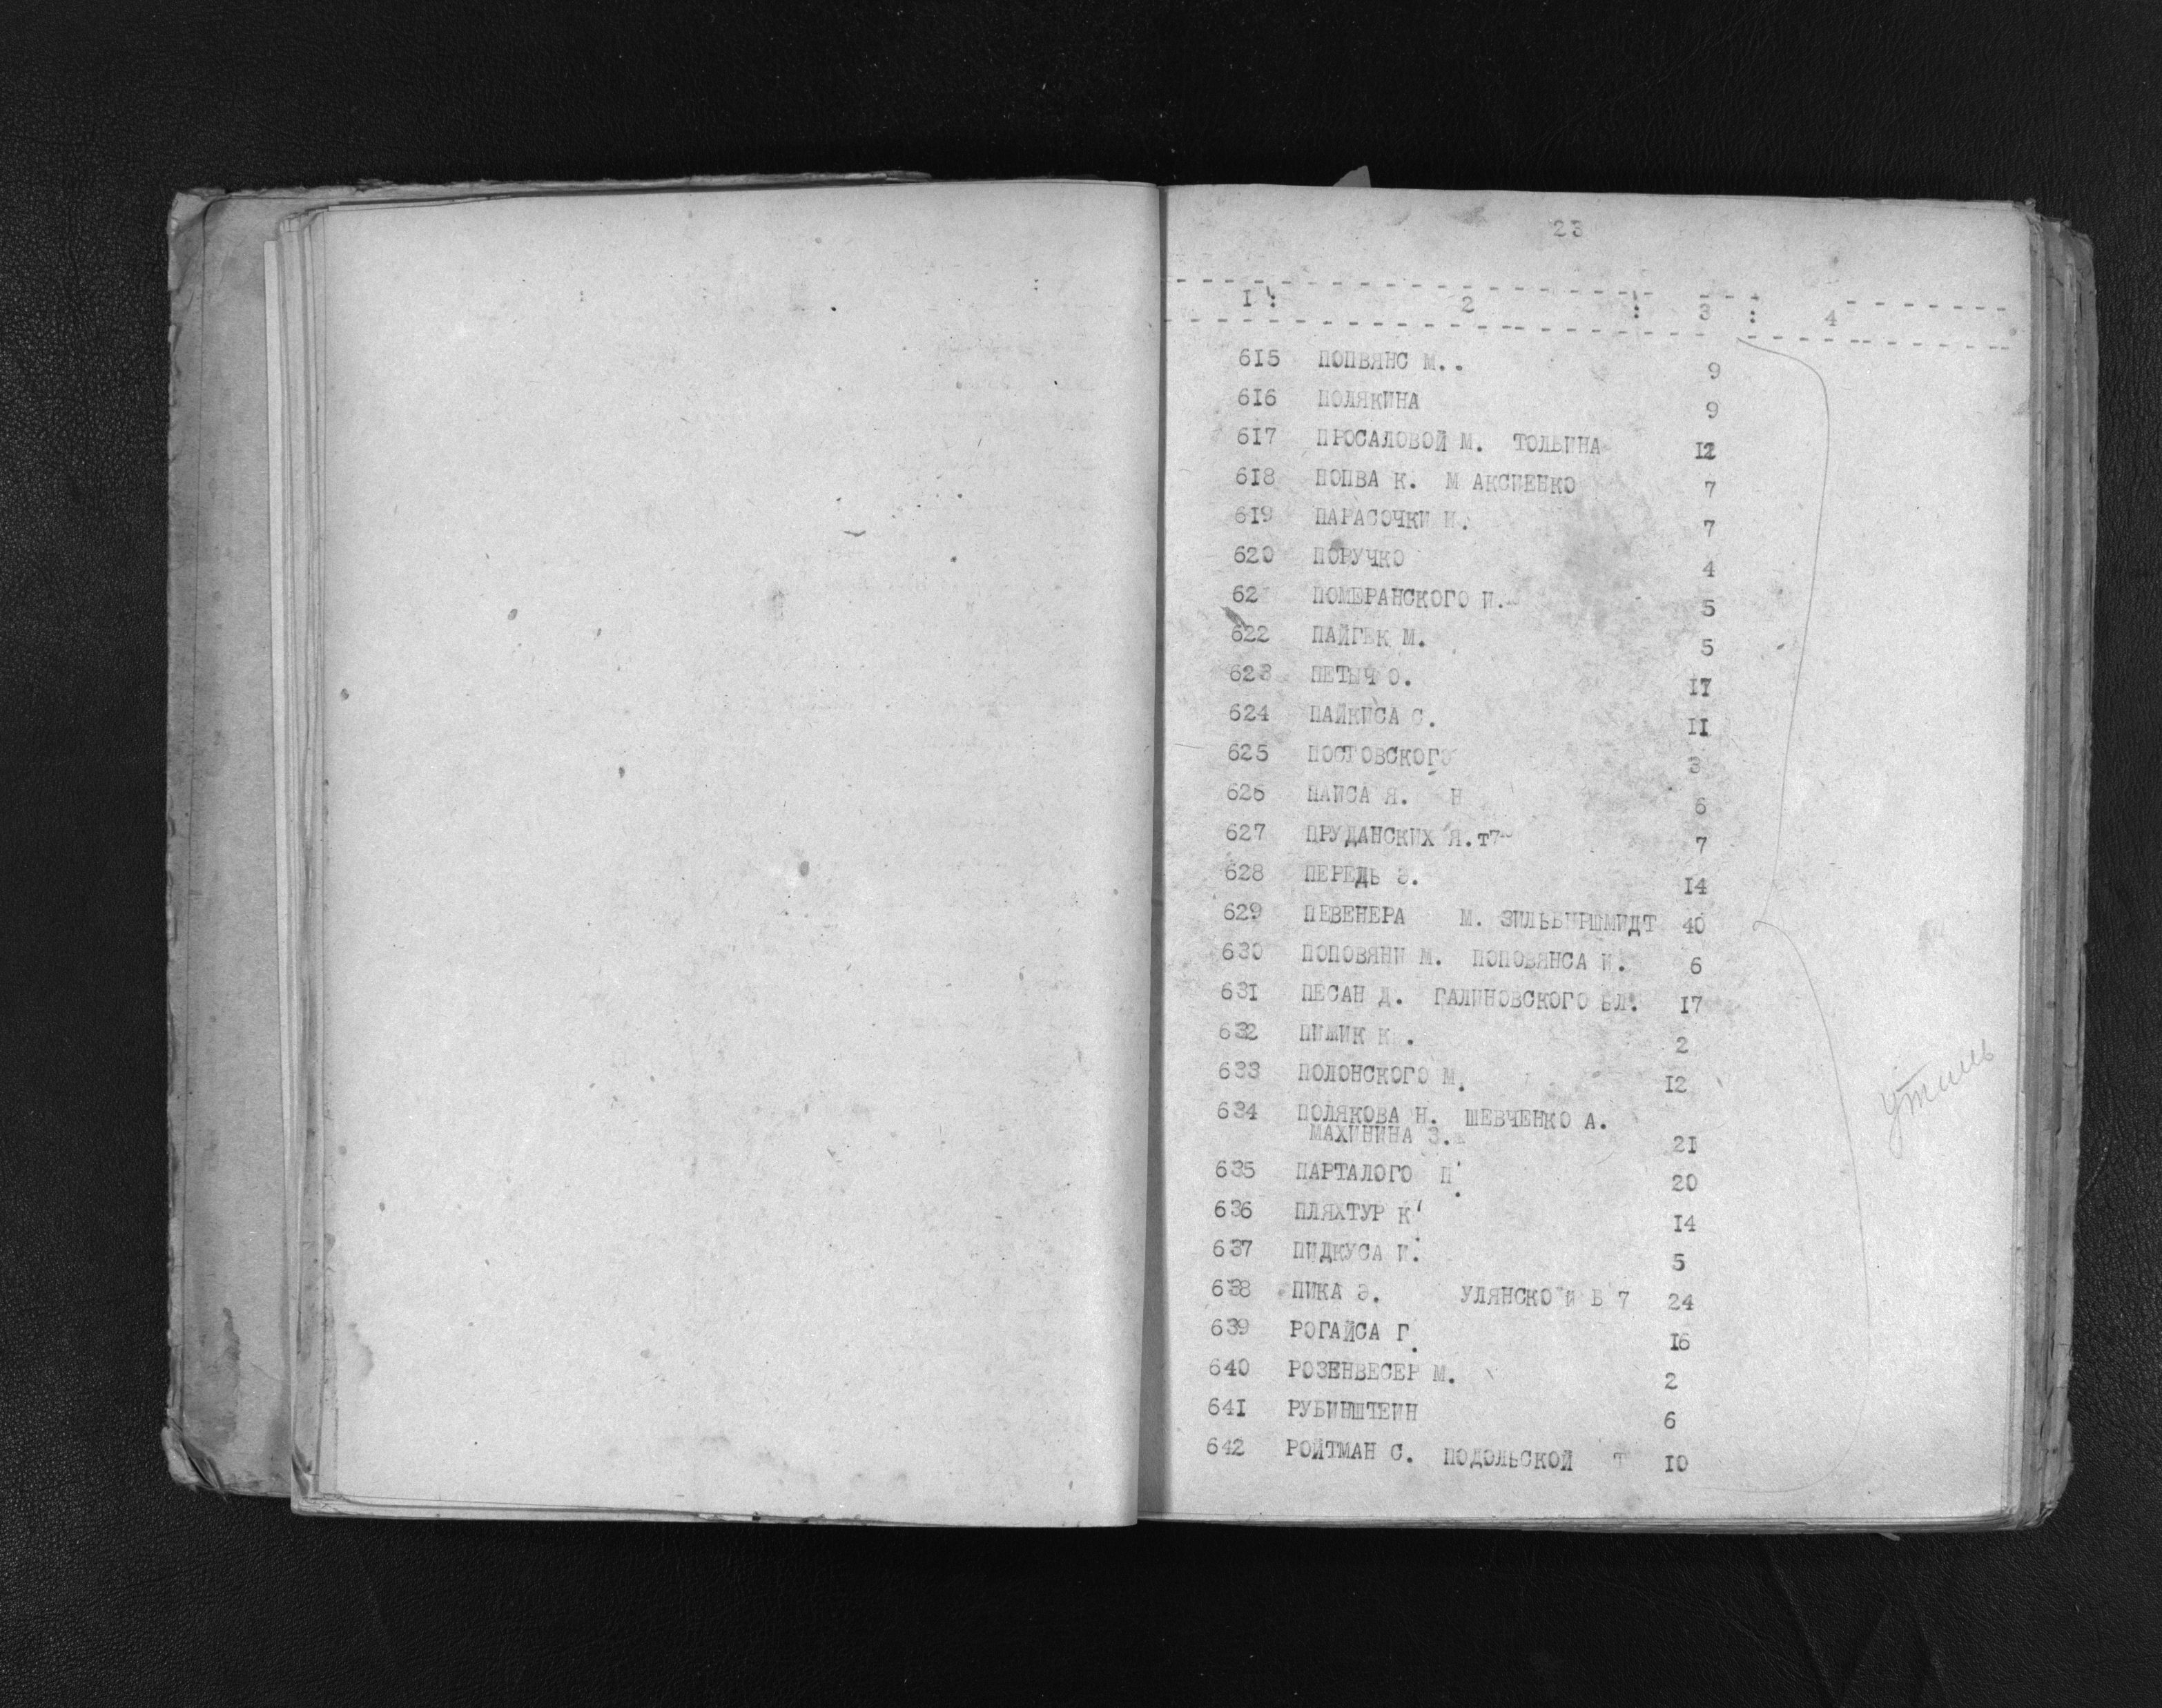 23
I : 2 : 3 : 4
615 ПОПВЯНС М.. 9
616 ПОЛЯКИНА 9
617 ПРОСАЛОВОЙ М. ТОЛЬИНА 12
618 ПОПВА К. М АКСИЕНКО 7
619 ПАРАСОЧКИ И. 7
620 ПОРУЧКО 4
62 ПОМЕРАНСКОГО И. 5
622 ПАЙГЕК М. 5
623 ПЕТЫЧ О. 17
624 ПАЙКИСА С. II
625 ПОСТОВСКОГО 3
626 ПАИСА Я. Н 6
627 ПРУДАНСКИХ Я.т7 7
628 ПЕРЕДЬ Э. I4
629 ПЕВЕНЕРА М. ЗИЛЬБИРШМИДТ 40
630 ПОПОВЯНИ М. ПОПОВЯНСА И. 6
63I ПЕСАН Д. ГАЛИНОВСКОГО ВЛ. I7
632 К . 2
633 ПОЛОНСКОГО М. I2
634 ПОЛЯКОВА Н. ШЕВЧЕНКО А.
МАХИНИНА З. 2I
635 ПАРТАЛОГО П. 20
636 ПЛЯХТУР К I4
637 ПИДКУСА И. 5
638 ПИКА Э. УЛЯНСКО Й Б 7 24
639 РОГАЙСА Г. I6
640 РОЗЕНВЕСЕР М. 2
64I РУБИНШТЕИН 6
642 РОЙТМАН С. ПОДОЛЬСКОЙ Т I0
утиль